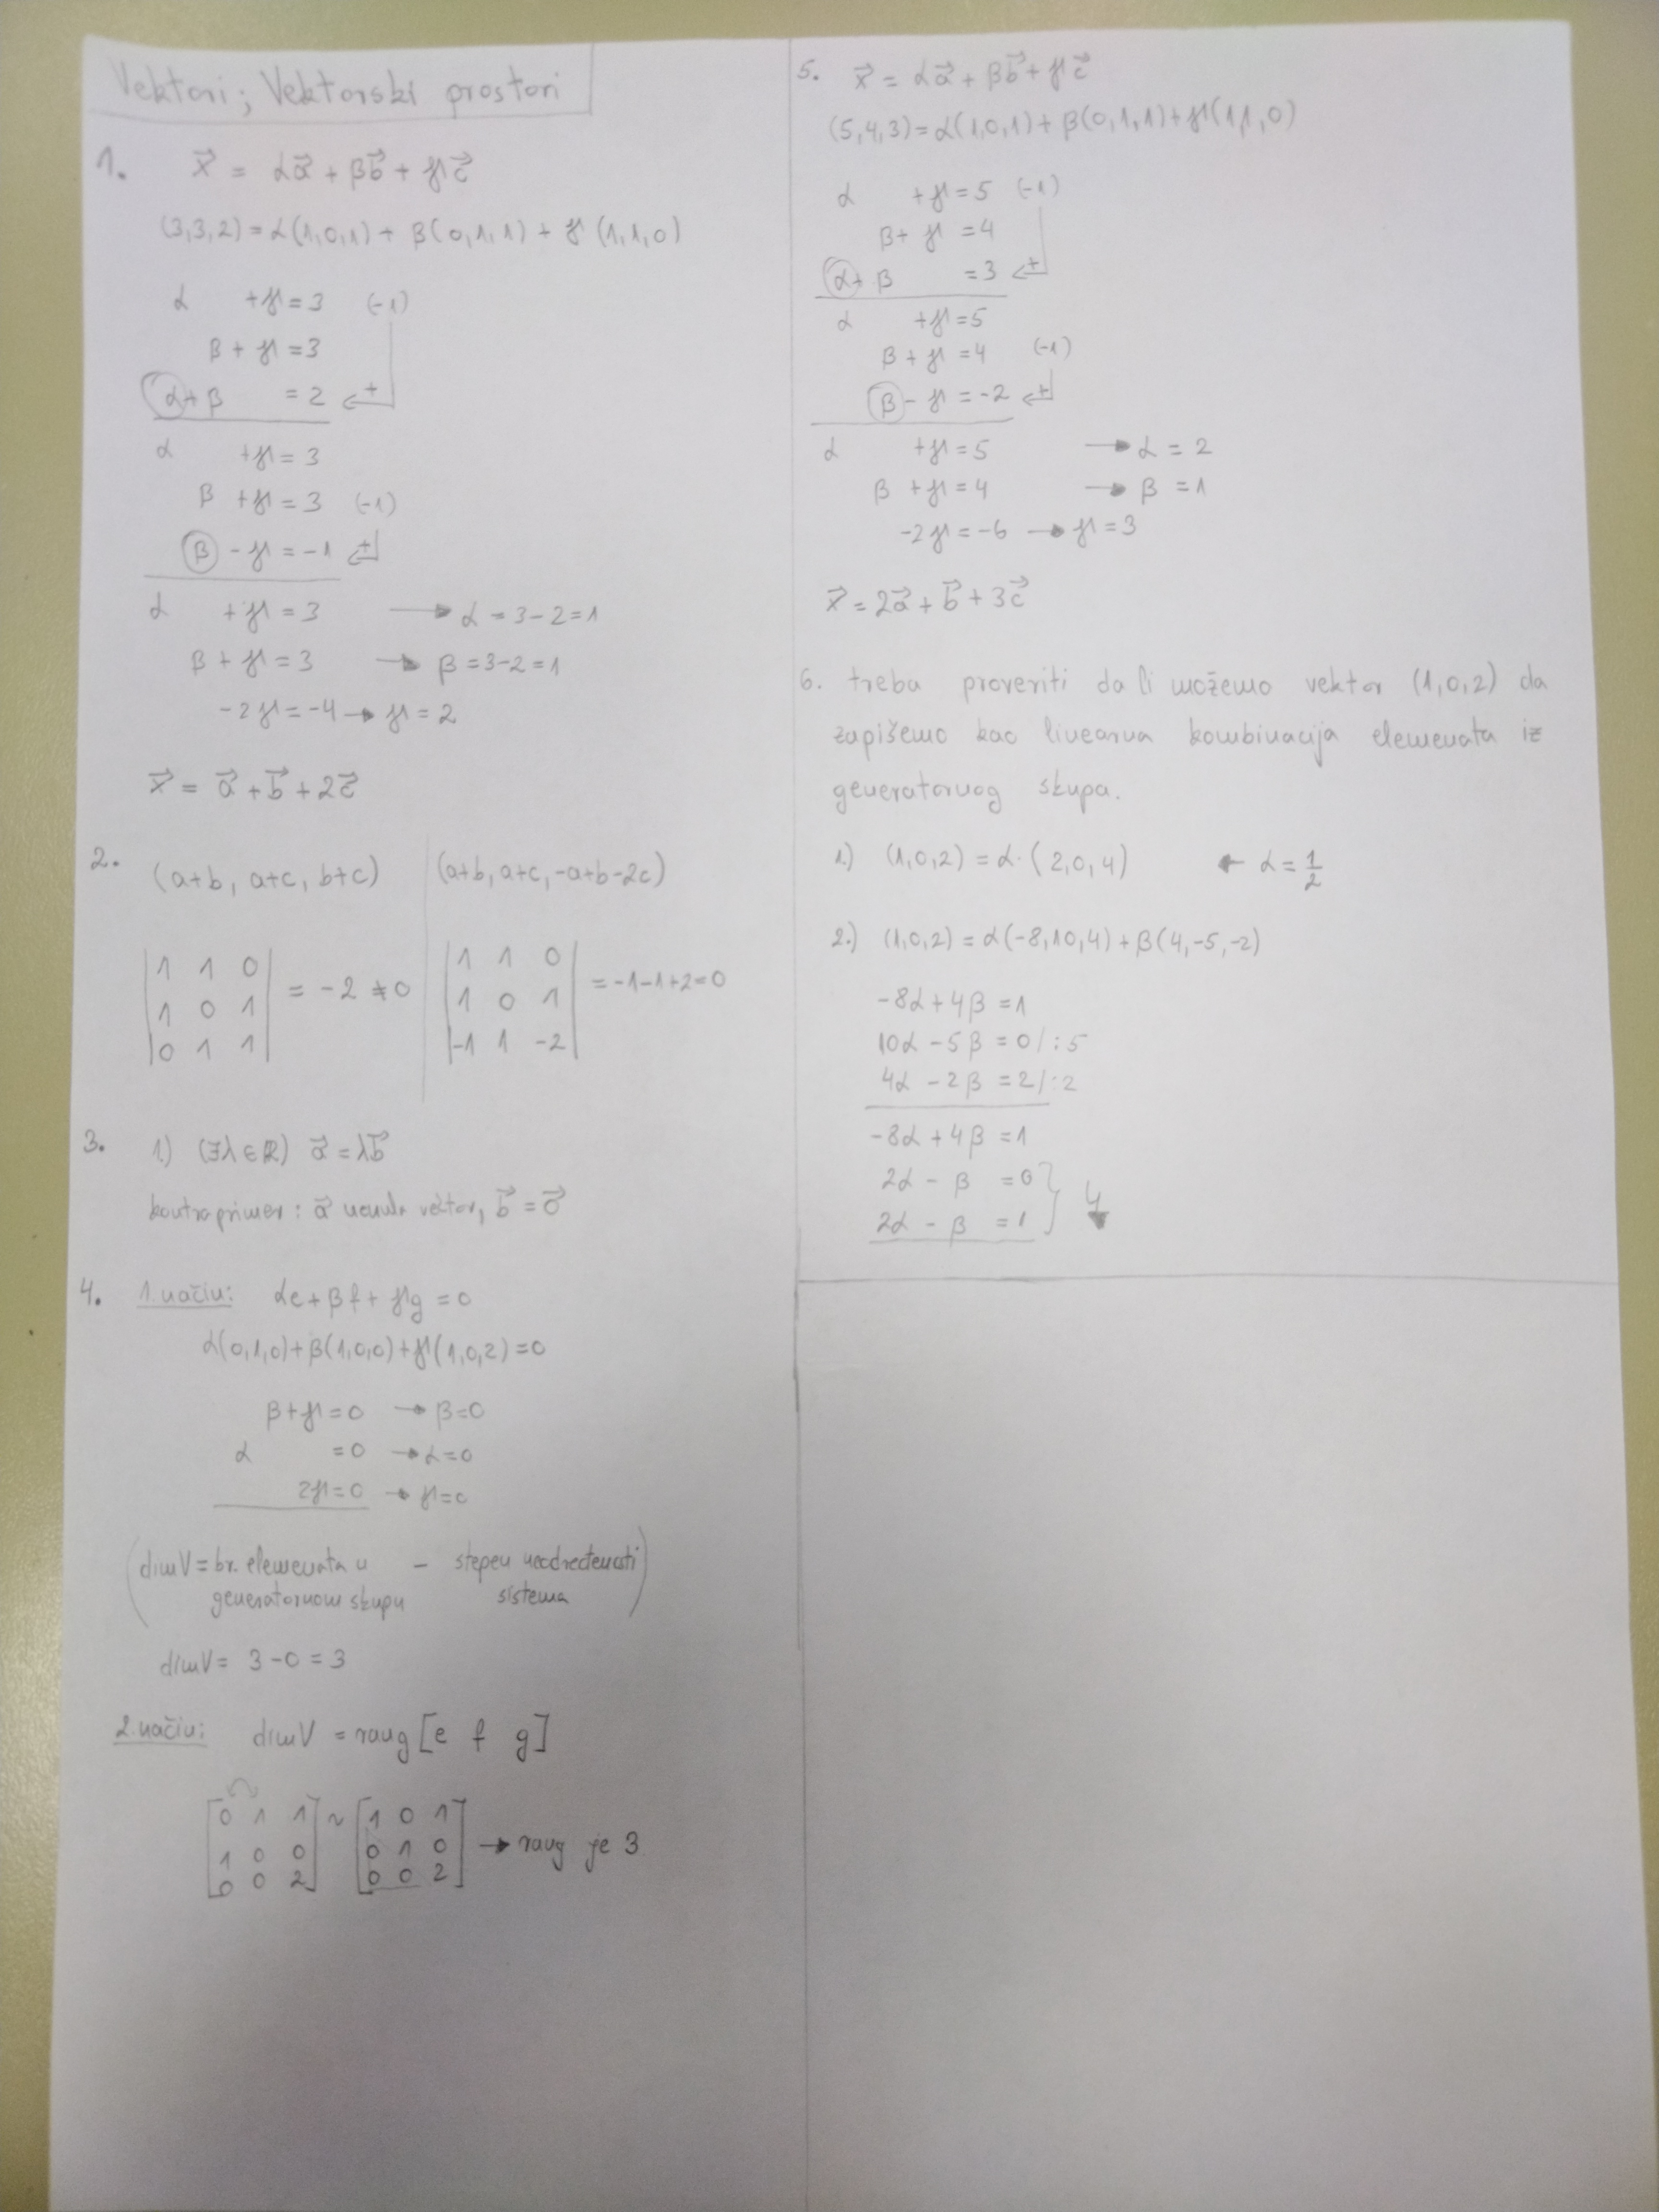 Vektori; Vektorski prostori
1. x⃗ = αa⃗ + βb⃗ + γc⃗
(3,3,2) = α(1,0,1) + β(0,1,1) + γ(1,1,0)
α +γ = 3 (-1)
β + γ = 3
α + β = 2 ↩ +
α +γ = 3
β +γ = 3 (-1)
β - γ = -1 ↩ +
α +γ = 3 → α = 3-2 = 1
β + γ = 3 → β = 3-2 = 1
-2γ = -4 → γ = 2
x⃗ = a⃗ + b⃗ + 2c⃗
2. (a+b, a+c, b+c) | (a+b, a+c, -a+b-2c)
|1 1 0| |1 1 0|
|1 0 1| = -2 ≠ 0 |1 0 1| = -1-1+2=0
|0 1 1| |-1 1 -2|
3. 1.) (∃λ∈R) a⃗ = λb⃗
kontraprimer: a⃗ nenula vektor, b⃗ = 0⃗
4. 1.način: αe + βf + γg = 0
α(0,1,0)+β(1,0,0)+γ(1,0,2)=0
β+γ=0 → β=0
α =0 → α=0
2γ=0 → γ=0
(dimV = br. elemenata u - stepen neodređenosti
generatornom skupu sistema)
dimV = 3-0 = 3
2.način: dimV = rang [e f g]
[0 1 1] ~ [1 0 1]
[1 0 0] [0 1 0] → rang je 3
[0 0 2] [0 0 2]
5. x⃗ = αa⃗ + βb⃗ + γc⃗
(5,4,3) = α(1,0,1) + β(0,1,1) + γ(1,1,0)
α +γ = 5 (-1)
β + γ = 4
α + β = 3 ↩ +
α +γ = 5
β + γ = 4 (-1)
β - γ = -2 ↩ +
α +γ = 5 → α = 2
β +γ = 4 → β = 1
-2γ = -6 → γ = 3
x⃗ = 2a⃗ + b⃗ + 3c⃗
6. treba proveriti da li možemo vektor (1,0,2) da
zapišemo kao linearna kombinacija elemenata iz
generatornog skupa.
1.) (1,0,2) = α·(2,0,4) ← α = 1/2
2.) (1,0,2) = α(-8,10,4) + β(4,-5,-2)
-8α + 4β = 1
10α - 5β = 0 /:5
4α - 2β = 2 /:2
-8α + 4β = 1
2α - β = 0
2α - β = 1